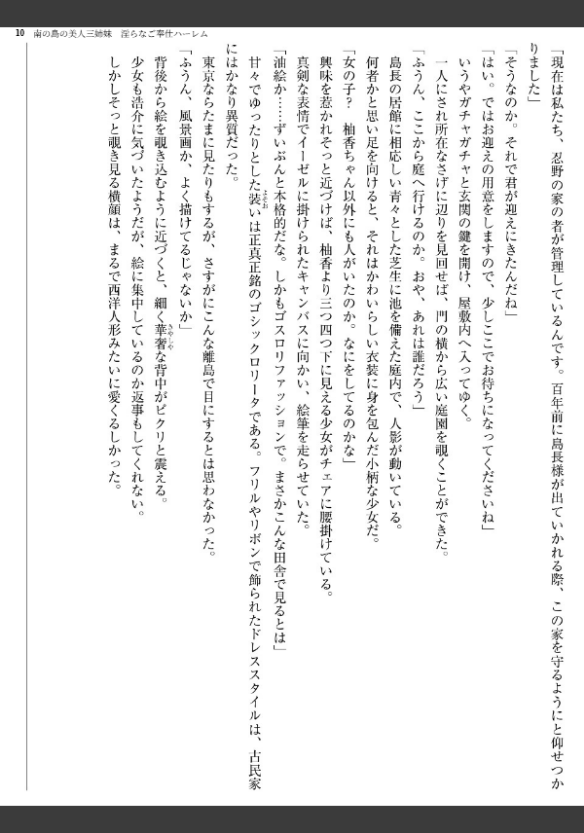 10 南の島の美人三姉妹 淫らなご奉仕ハーレム
「現在は私たち、忍野の家の者が管理しているんです。百年前に島長様が出ていかれる際、この家を守るようにと仰せつか
りました」
「そうなのか。それで君が迎えにきたんだね」
「はい。ではお迎えの用意をしますので、少しここでお待ちになってくださいね」
いうやガチャガチャと玄関の鍵を開け、屋敷内へ入ってゆく。
一人にされ所在なさげに辺りを見回せば、門の横から広い庭園を覗くことができた。
「ふうん、ここから庭へ行けるのか。おや、あれは誰だろう」
島長の居館に相応しい青々とした芝生に池を備えた庭内で、人影が動いている。
何者かと思い足を向けると、それはかわいらしい衣装に身を包んだ小柄な少女だ。
「女の子? 柚香ちゃん以外にも人がいたのか。なにをしてるのかな」
興味を惹かれそっと近づけば、柚香より三つ四つ下に見える少女がチェアに腰掛けている。
真剣な表情でイーゼルに掛けられたキャンバスに向かい、絵筆を走らせていた。
「油絵か……ずいぶんと本格的だな。しかもゴスロリファッションで。まさかこんな田舎で見るとは」
甘々でゆったりとした装いは正真正銘のゴシックロリータである。フリルやリボンで飾られたドレススタイルは、古民家
にはかなり異質だった。
東京ならたまに見たりもするが、さすがにこんな離島で目にするとは思わなかった。
「ふうん、風景画か、よく描けてるじゃないか」
背後から絵を覗き込むように近づくと、細く華奢な背中がビクリと震える。
少女も浩介に気づいたようだが、絵に集中しているのか返事もしてくれない。
しかしそっと覗き見る横顔は、まるで西洋人形みたいに愛くるしかった。